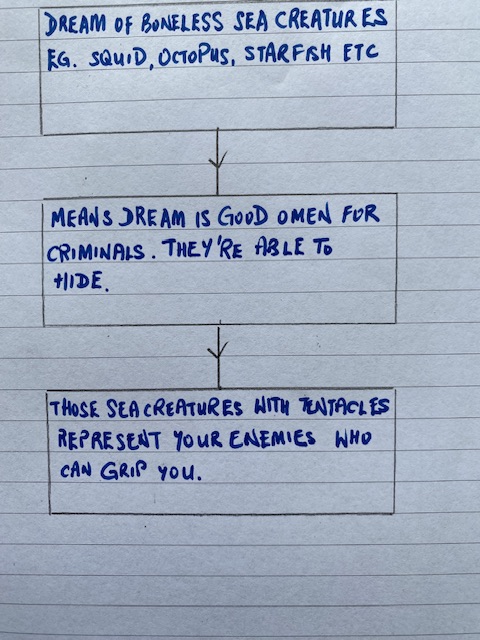 DREAM OF BONELESS SEA CREATURES
EG. SQUID, OCTOPUS, STARFISH ETC
MEANS DREAM IS GOOD OMEN FOR
CRIMINALS. THEY'RE ABLE TO
HIDE.
THOSE SEA CREATURES WITH TENTACLES
REPRESENT YOUR ENEMIES WHO
CAN GRIP YOU.